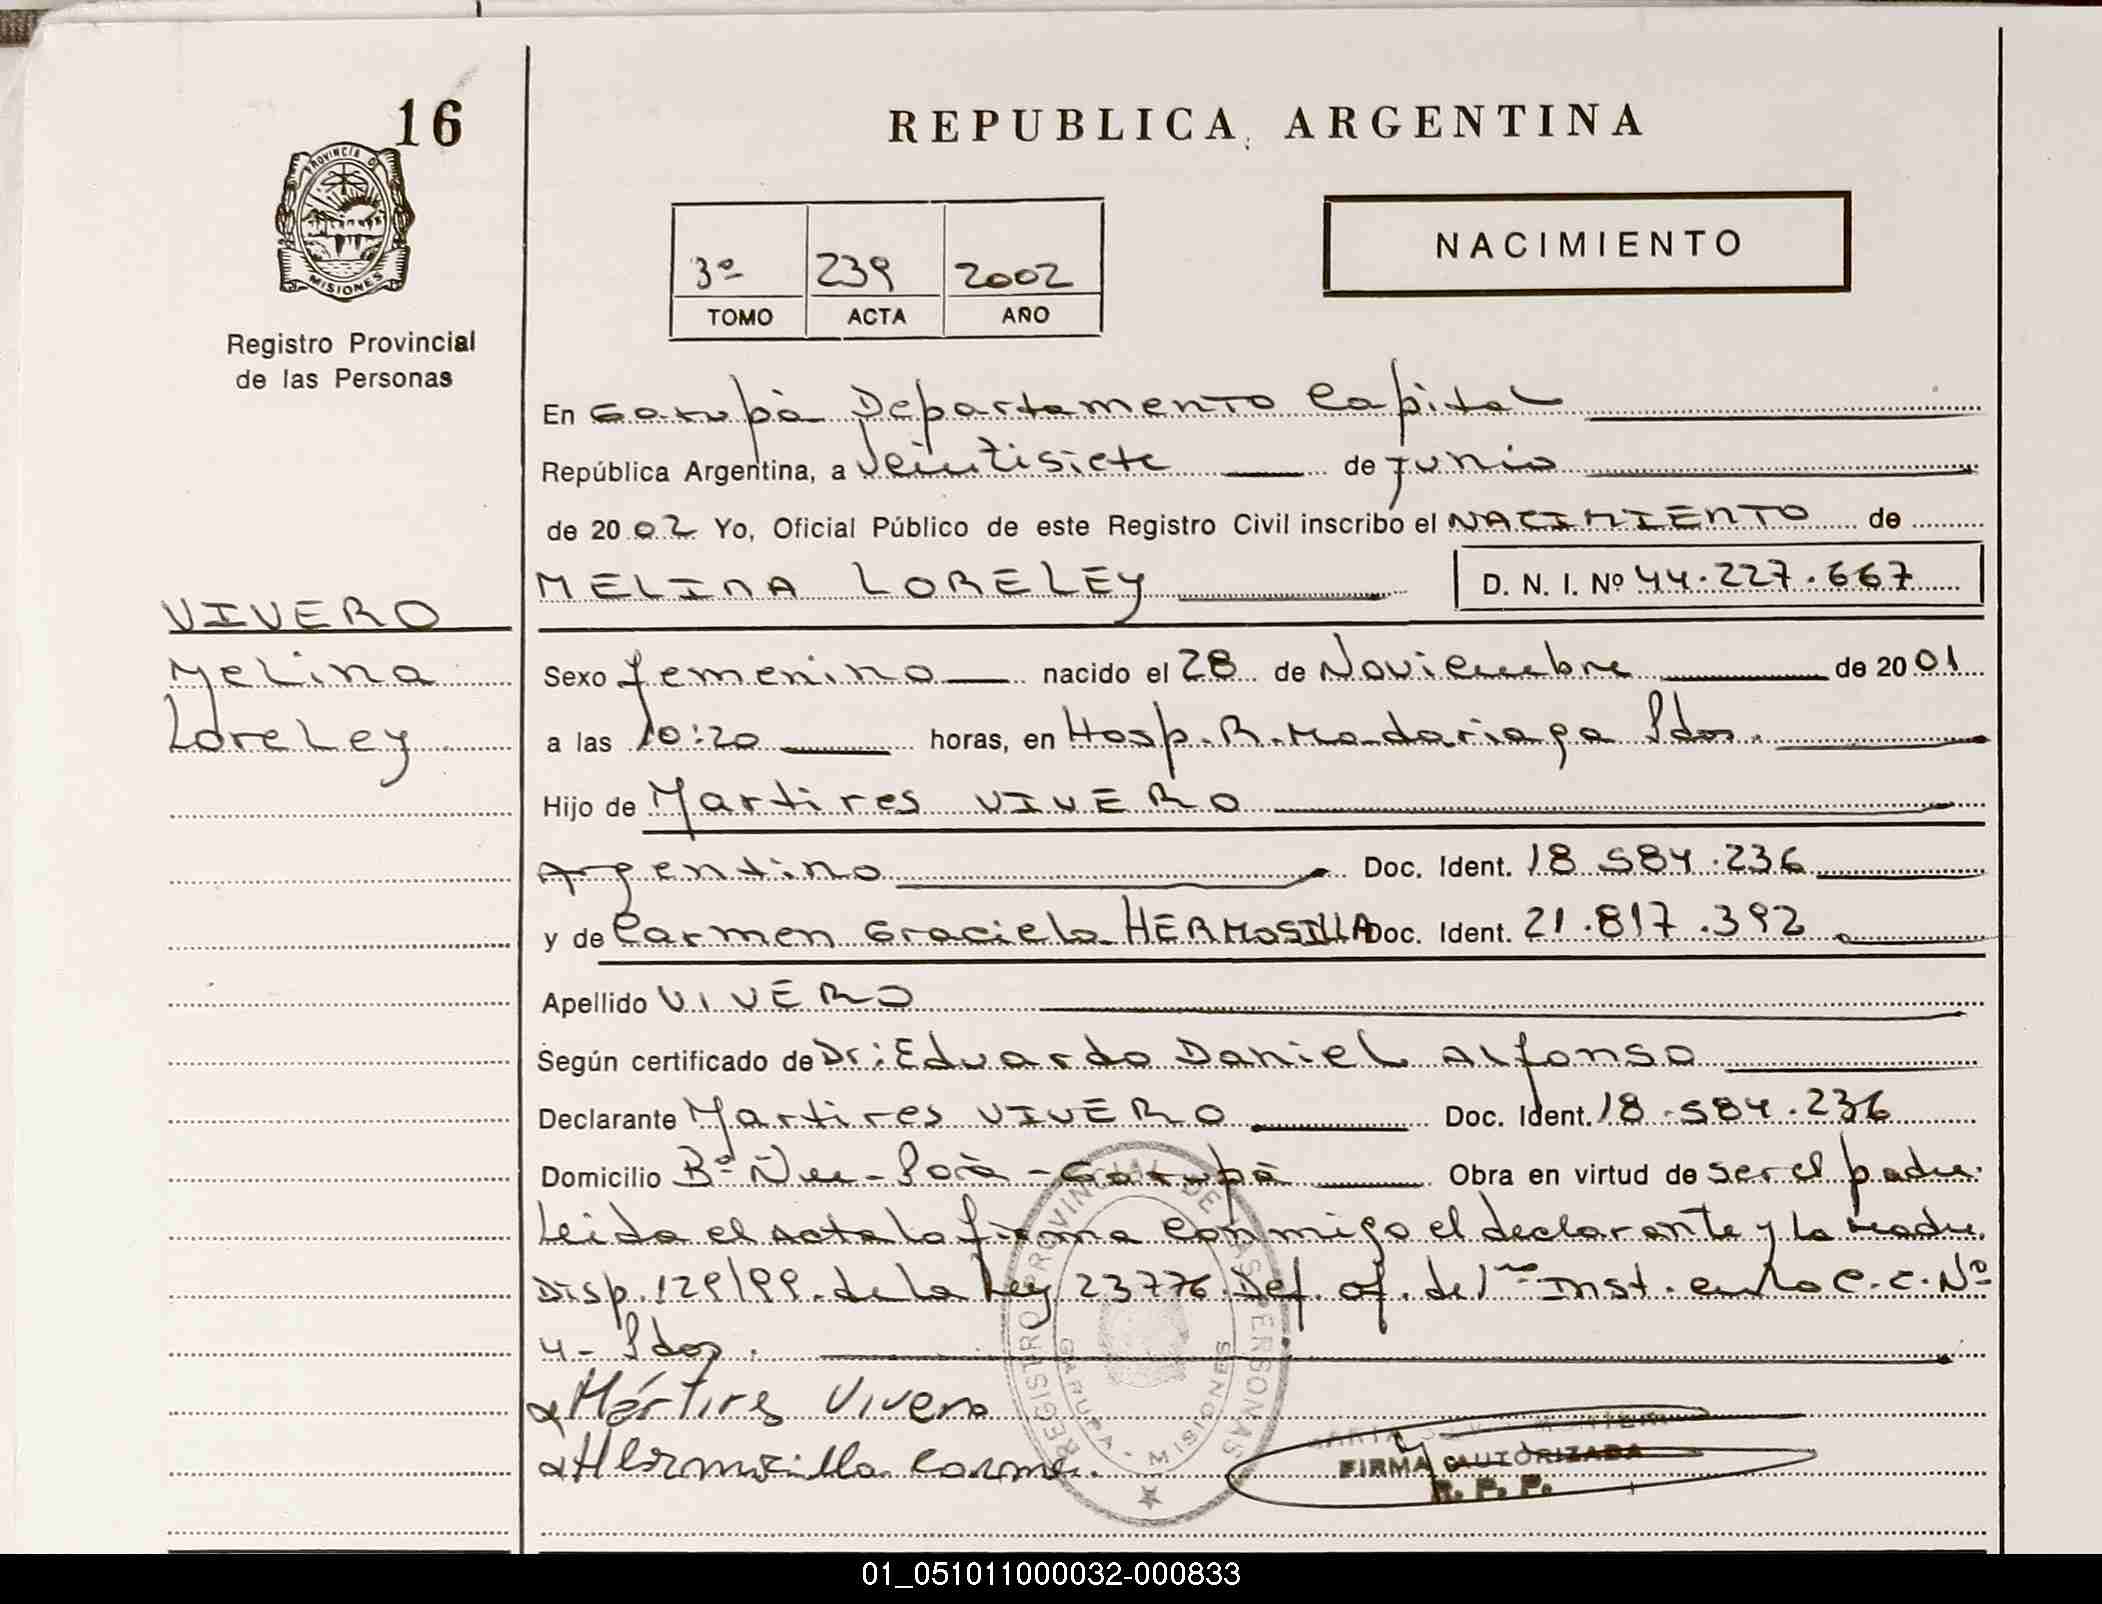 16
PROVINCIA DE
MISIONES
Registro Provincial
de las Personas
VIVERO
Melina
Loreley
REPUBLICA ARGENTINA
NACIMIENTO
3º 239 2002
TOMO ACTA AÑO
En Garupà Departamento Capital
República Argentina, a veintisiete de junio
de 2002 Yo, Oficial Público de este Registro Civil inscribo el NACIMIENTO de
MELINA LORELEY D. N. I. Nº 44.227.667
Sexo femenino nacido el 28 de Noviembre de 2001
a las 10:20 horas, en Hosp. R. Madariaga Pdas.
Hijo de Martires VIVERO
Argentino Doc. Ident. 18.584.236
y de Carmen Graciela HERMOSILLA Doc. Ident. 21.817.392
Apellido VIVERO
Según certificado de Dr: Eduardo Daniel Alfonso
Declarante Martires VIVERO Doc. Ident. 18.584.236
Domicilio Bº Ñu - Porà - Garupà Obra en virtud de ser el padre.
Leida el acta la firma conmigo el declarante y la madre.
Disp. 129/99. de la Ley 23776. Def. of. de 1ra Inst. en lo C. C. Nº
4 - Pdas.
Mártires Vivero
Hermosilla Carmen
REGISTRO PROVINCIAL DE LAS PERSONAS
GARUPA - MISIONES
FIRMA AUTORIZADA
R. P. P.
01_051011000032-000833